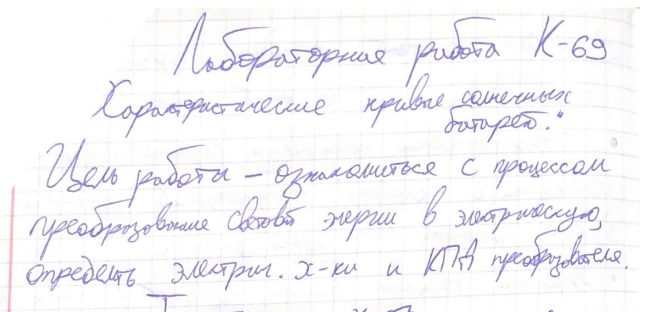 Лабораторная работа К-69
Характеристические кривые солнечных
батарей."
Цель работы – ознакомиться с процессом
преобразование световой энергии в электрическую,
определить электрич. х-ки и КПД преобразователя.